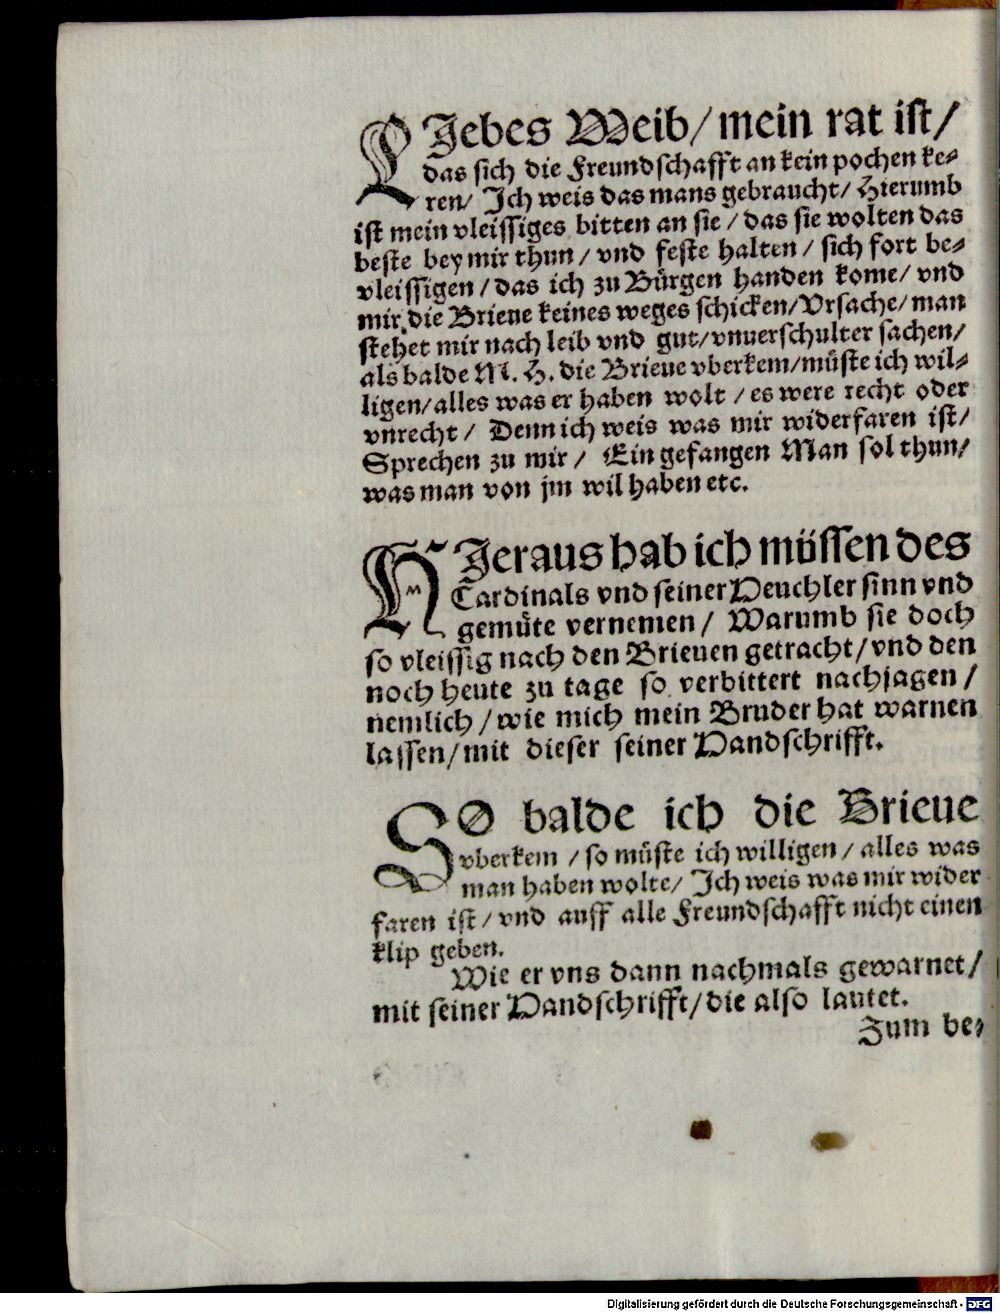 LJebes Weib/ mein rat ist/
das sich die Freundschafft an kein pochen ke-
ren/ Jch weis das mans gebraucht/ Hierumb
ist mein vleissiges bitten an sie / das sie wolten das
beste bey mir thun / vnd feste halten / sich fort be-
vleissigen / das ich zu Bürgen handen kome/ vnd
mir die Brieue keines weges schicken/Vrsache/ man
stehet mir nach leib vnd gut/ vnuerschulter sachen/
als balde M. H. die Brieue vberkem/müste ich wil-
ligen/ alles was er haben wolt / es were recht oder
vnrecht / Denn ich weis was mir widerfaren ist/
Sprechen zu mir / Ein gefangen Man sol thun/
was man von jm wil haben etc.
HJeraus hab ich müssen des
Cardinals vnd seiner Heuchler sinn vnd
gemüte vernemen / Warumb sie doch
so vleissig nach den Brieuen getracht/ vnd den
noch heute zu tage so verbittert nachjagen /
nemlich / wie mich mein Bruder hat warnen
lassen/ mit dieser seiner Handschrifft.
SO balde ich die Brieue
vberkem / so müste ich willigen / alles was
man haben wolte/ Jch weis was mir wider
faren ist / vnd auff alle Freundschafft nicht einen
klip geben.
Wie er vns dann nachmals gewarnet/
mit seiner Handschrifft/ die also lautet.
Zum be-
Digitalisierung gefördert durch die Deutsche Forschungsgemeinschaft - DFG